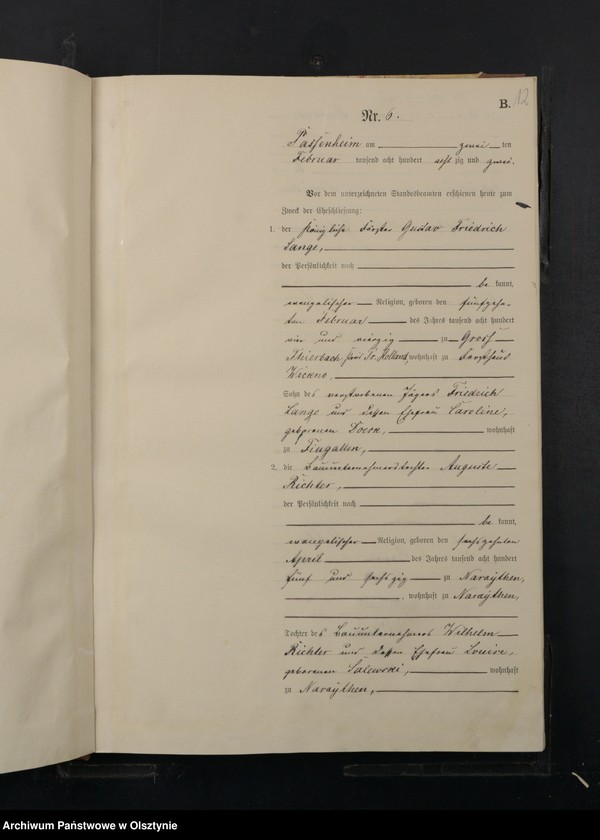 B. 12
Nr. 6.
Passenheim am zwei ten
Februar tausend acht hundert acht zig und zwei.
Vor dem unterzeichneten Standesbeamten erschienen heute zum
Zweck der Eheschließung:
1. der Königliche Förster Gustav Friedrich
Lange,
der Persönlichkeit nach
be kannt,
evangelischer Religion, geboren den fünfzehn-
ten Februar des Jahres tausend acht hundert
vier und vierzig zu Gross
Thierbach, Pr. Holland, wohnhaft zu Forsthaus
Sohn des verstorbenen Jägers Friedrich
Lange und dessen Ehefrau Caroline,
geborenen wohnhaft
zu
2. die Bauunternehmerstochter Auguste
Richter,
der Persönlichkeit nach
be kannt,
evangelischer Religion, geboren den sechszehnten
April des Jahres tausend acht hundert
fünf und sechszig zu Naraythen,
, wohnhaft zu Naraythen,
Tochter des Bauunternehmers Wilhelm
Richter und dessen Ehefrau Louise,
geborenen Salewski, wohnhaft
zu Naraythen,
Archiwum Państwowe w Olsztynie